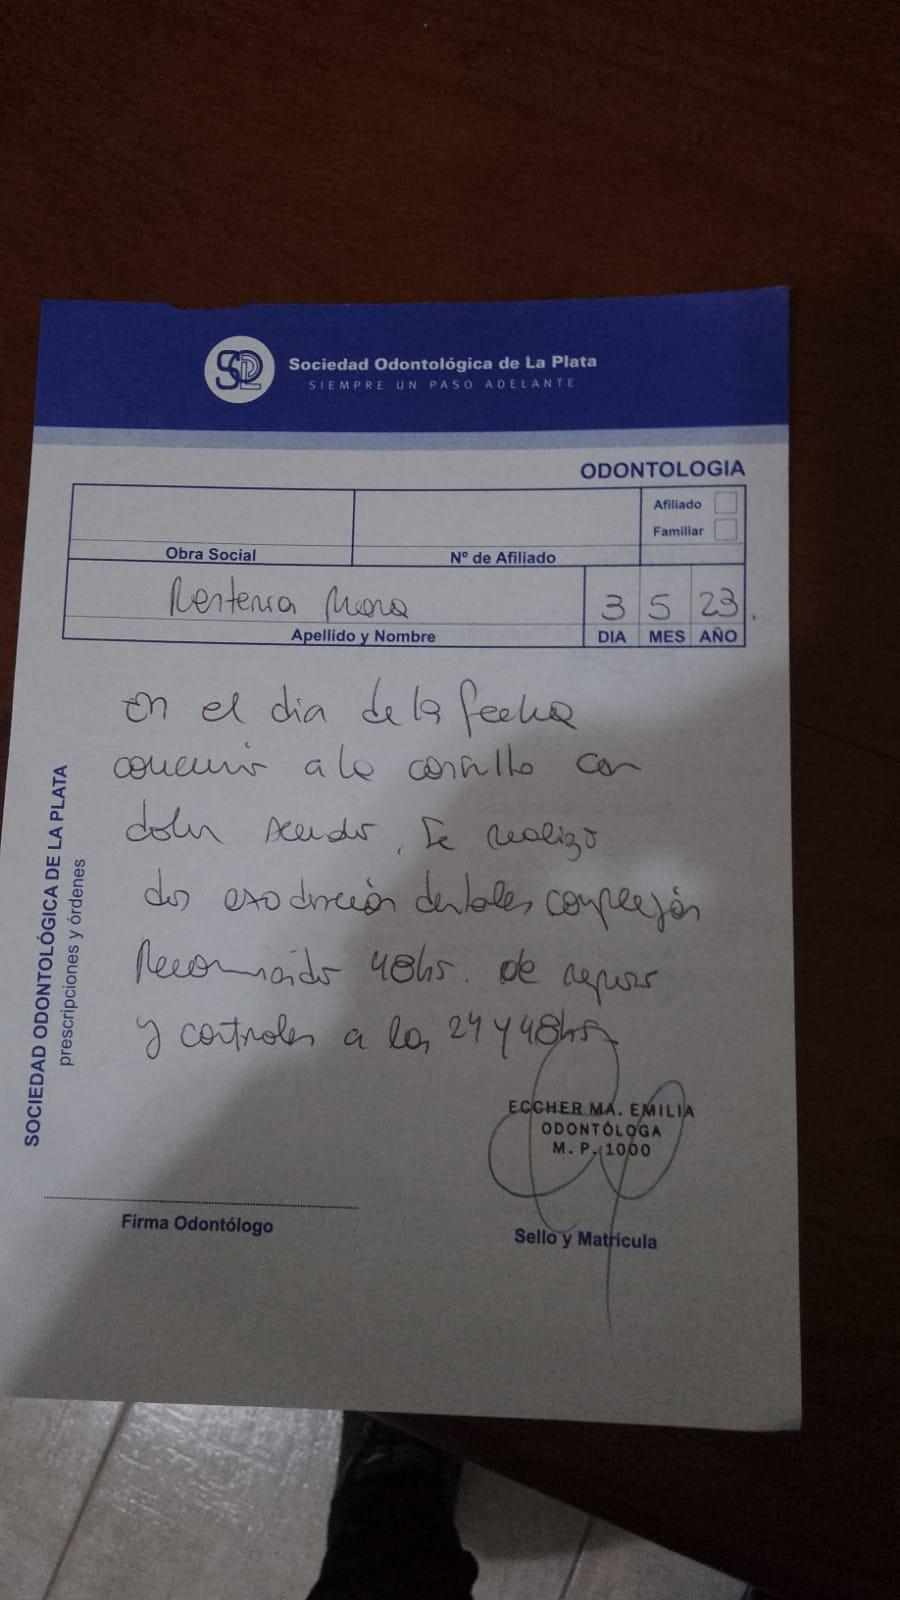 Sociedad Odontológica de La Plata
SIEMPRE UN PASO ADELANTE
ODONTOLOGIA
Afiliado
Familiar
Obra Social
Nº de Afiliado
3 5 23
Apellido y Nombre
DIA MES AÑO
En el dia de la fecha
a la con
dolor Se realizó
dos exodoncia dentales complejas
48hs. de reposo
y controles a las 24 y 48hs
SOCIEDAD ODONTOLÓGICA DE LA PLATA
prescripciones y órdenes
ECCHER MA. EMILIA
ODONTÓLOGA
M. P. 1000
Firma Odontólogo
Sello y Matrícula